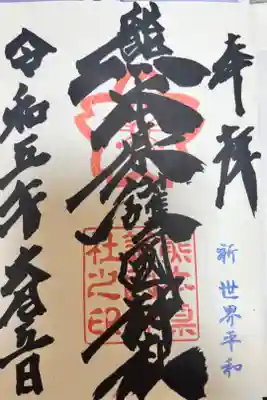 奉拝
祈 世界平和
熊本県護國神社
熊本県
護國神
社之印
令和五年 日